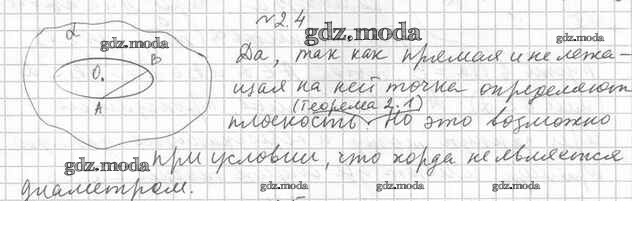 №2.4
gdz.moda
α
gdz.moda
Да, так как прямая и не лежа-
B
O.
щая на ней точка определяют
A
(Теорема 2.1)
плоскость. Но это возможно
gdz.moda
при условии, что хорда не является
диаметром.
gdz.moda gdz.moda gdz.moda